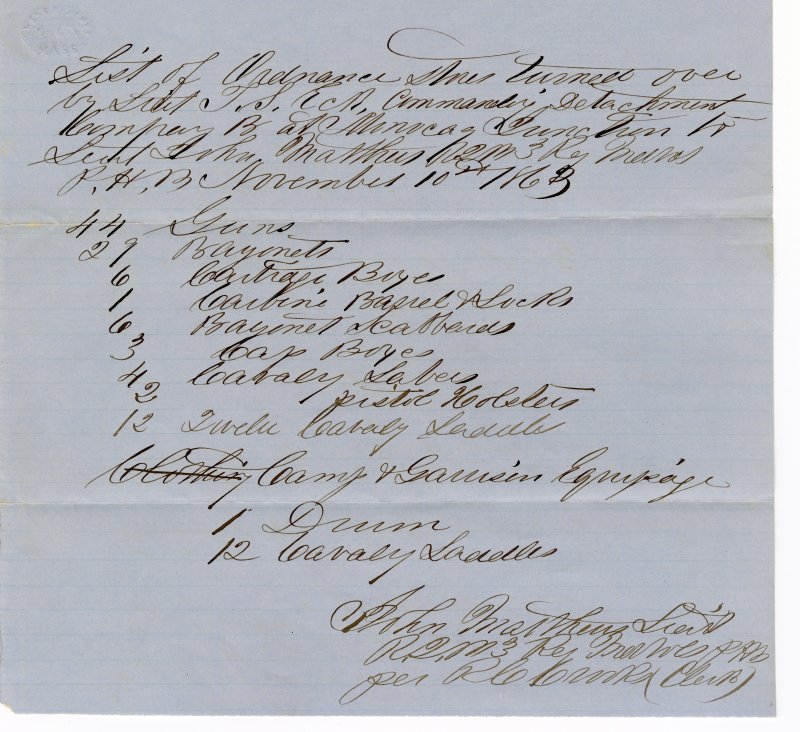 List of Ordnance Stores turned over
by Lieut T. S. Eck, Commanding Detachment
Company B at Monocacy Junction to
Lieut John Matthews R.Q.M 3 Reg
P. H. B November 10th 1863
44 Guns
29 Bayonets
6 Cartrage Boxes
1 Carbine Barrel & Locks
6 Bayonet Scabberds
3 Cap Boxes
4 Cavaly Sabers
2 pistol Holsters
12 Twelve Cavaly Saddles
Clothing Camp & Garrison Equipage
1 Drum
12 Cavaly Saddles
John Matthews Lieut
R.Q.M 3 Reg P H B
per (Clerk)
MASS